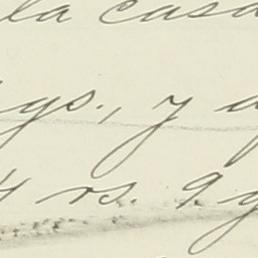 la casa
gs., y a
rs. 9 g